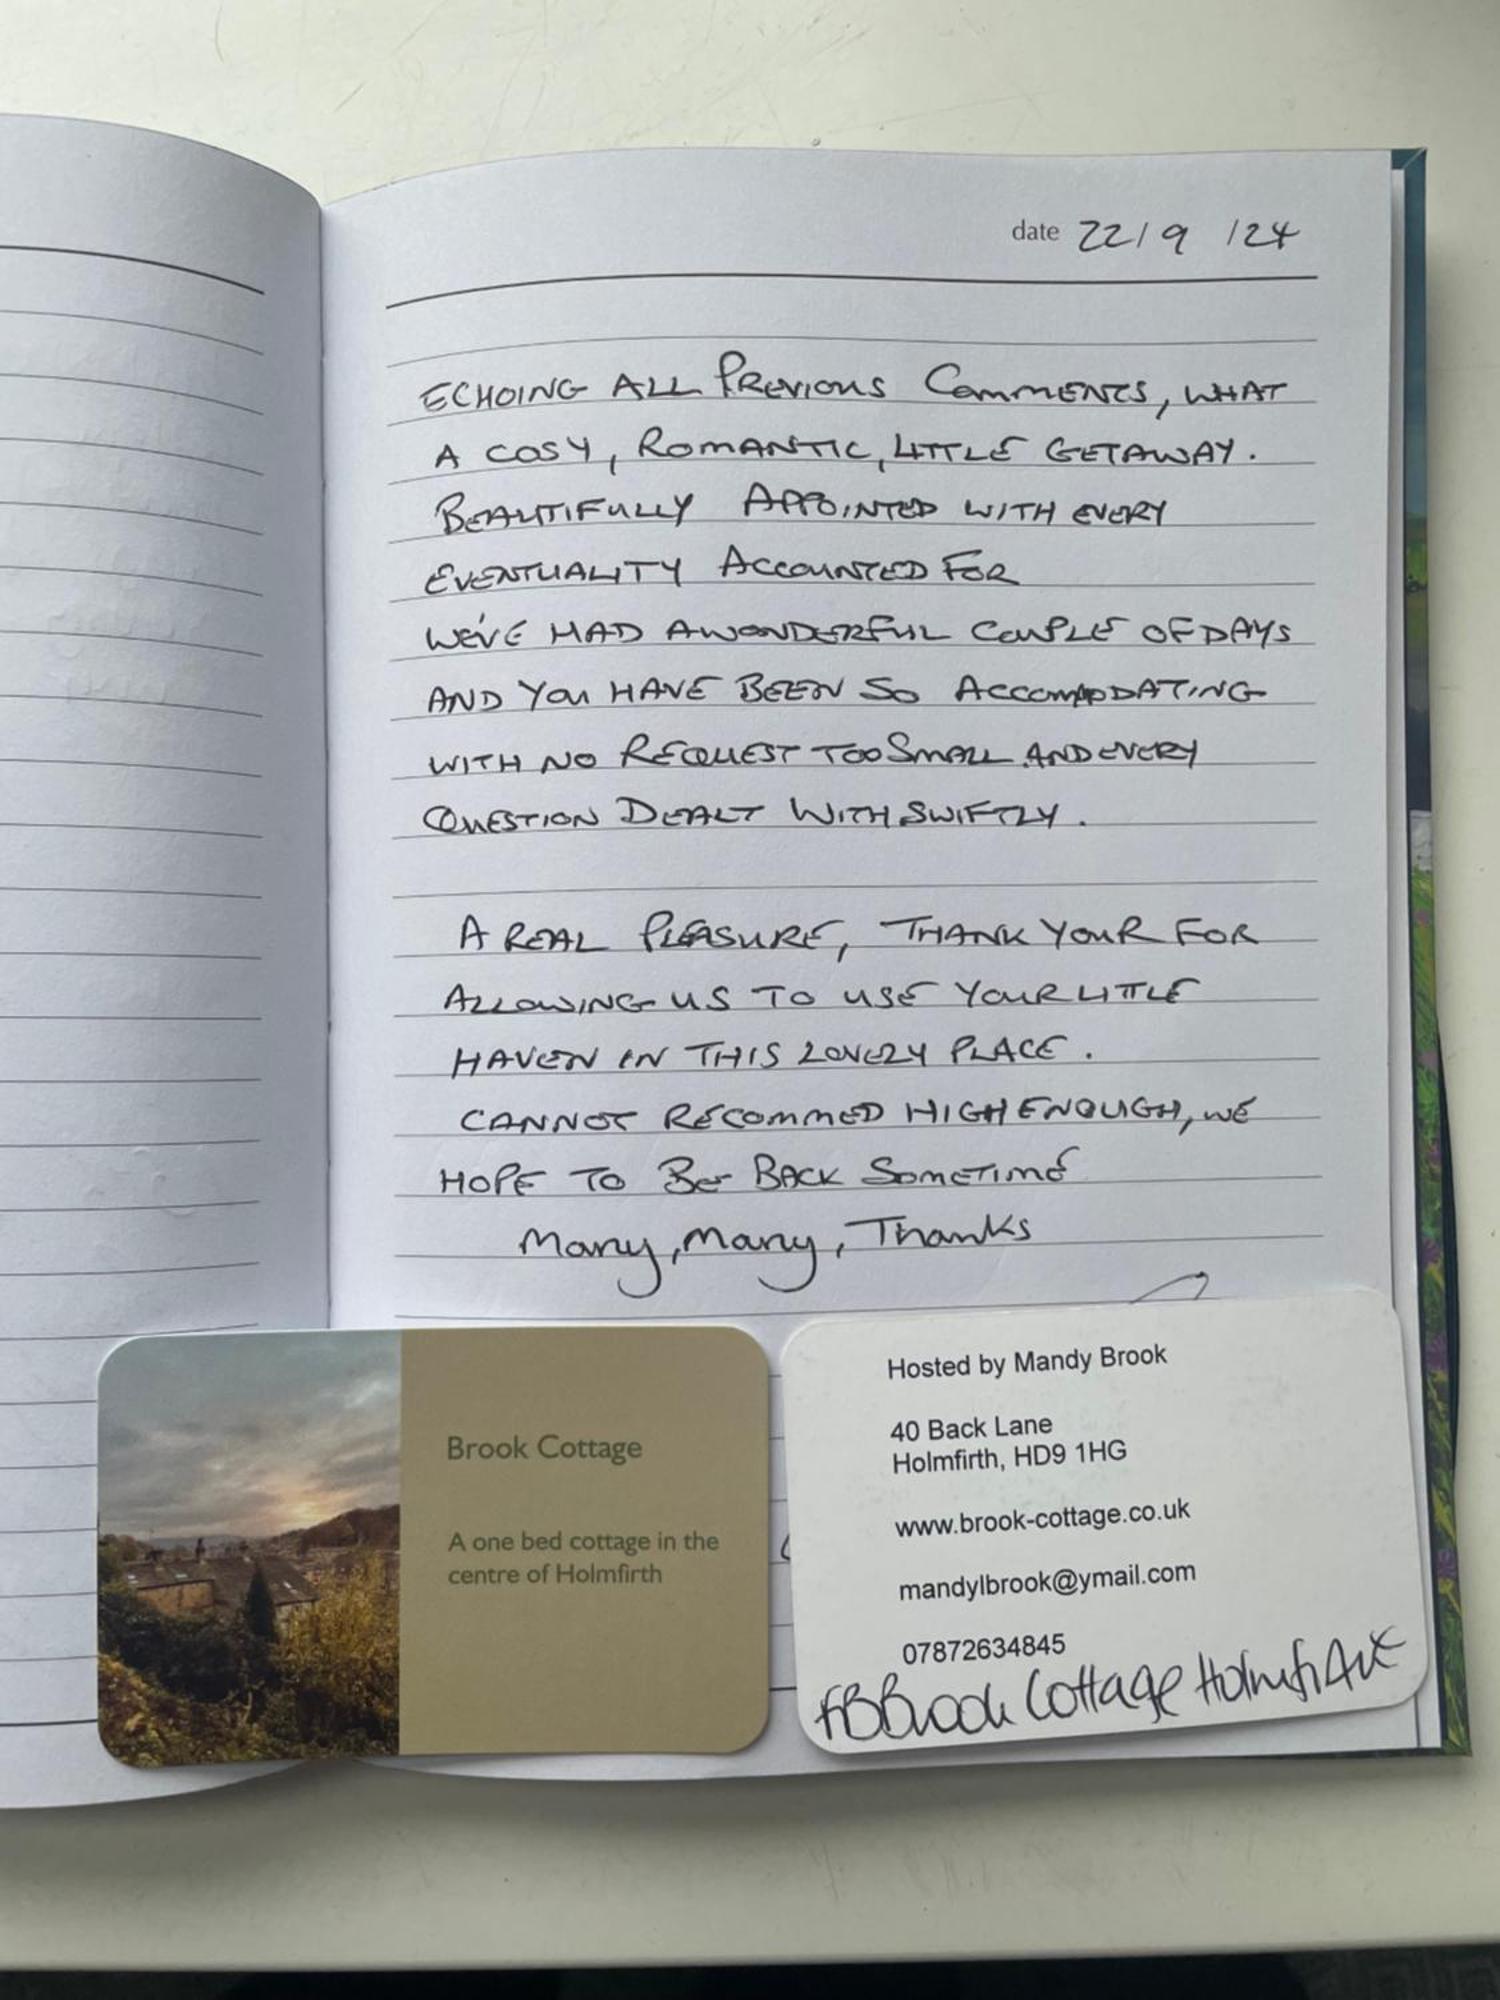 date 22/9/24
ECHOING ALL PREVIOUS COMMENTS, WHAT
A COSY, ROMANTIC, LITTLE GETAWAY.
BEAUTIFULLY APPOINTED WITH EVERY
EVENTUALITY ACCOUNTED FOR
WE'VE HAD A WONDERFUL COUPLE OF DAYS
AND YOU HAVE BEEN SO ACCOMODATING
WITH NO REQUEST TOO SMALL AND EVERY
QUESTION DEALT WITH SWIFTLY.
A REAL PLEASURE, THANK YOUR FOR
ALLOWING US TO USE YOUR LITTLE
HAVEN IN THIS LOVELY PLACE.
CANNOT RECOMMED HIGH ENOUGH, WE
HOPE TO BE BACK SOMETIME
Many, Many, Thanks
Brook Cottage
A one bed cottage in the
centre of Holmfirth
Hosted by Mandy Brook
40 Back Lane
Holmfirth, HD9 1HG
www.brook-cottage.co.uk
mandylbrook@ymail.com
07872634845
FB Brook Cottage